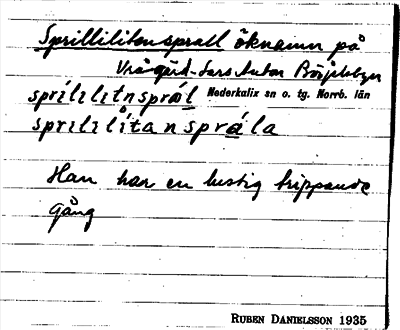 Sprillilitensprall öknamn på
Vrågård-Lars Anton Börjelsbyn
sprilılitnsprål Nederkalix sn o. tg. Norrb. län
sprılılitansprála
Han har en lustig trippande
gång
RUBEN DANIELSSON 1935